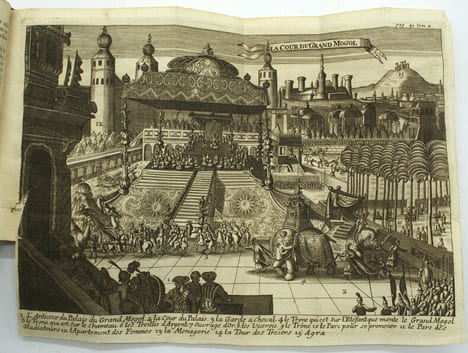 pag 40 tom 2
LA COUR DU GRAND MOGOL
12
2
1. L'Anticour du Palais du Grand Mogol 2 la Cour du Palais. 3 la Garde a Cheval. 4 le Trone qui est sur l'Elefant que monte le Grand Mogol
5 le Trone qui est sur le Chameau. 6 les Treilles d'Argent 7 ouvrage d'Or. 8 les 9 le Trône 10 le Parc pour se promener 11 le Parc des
Gladiateurs 12 l'départment des Femmes 13 la Menagerie 14 la Tour des Tresors 15 Agra